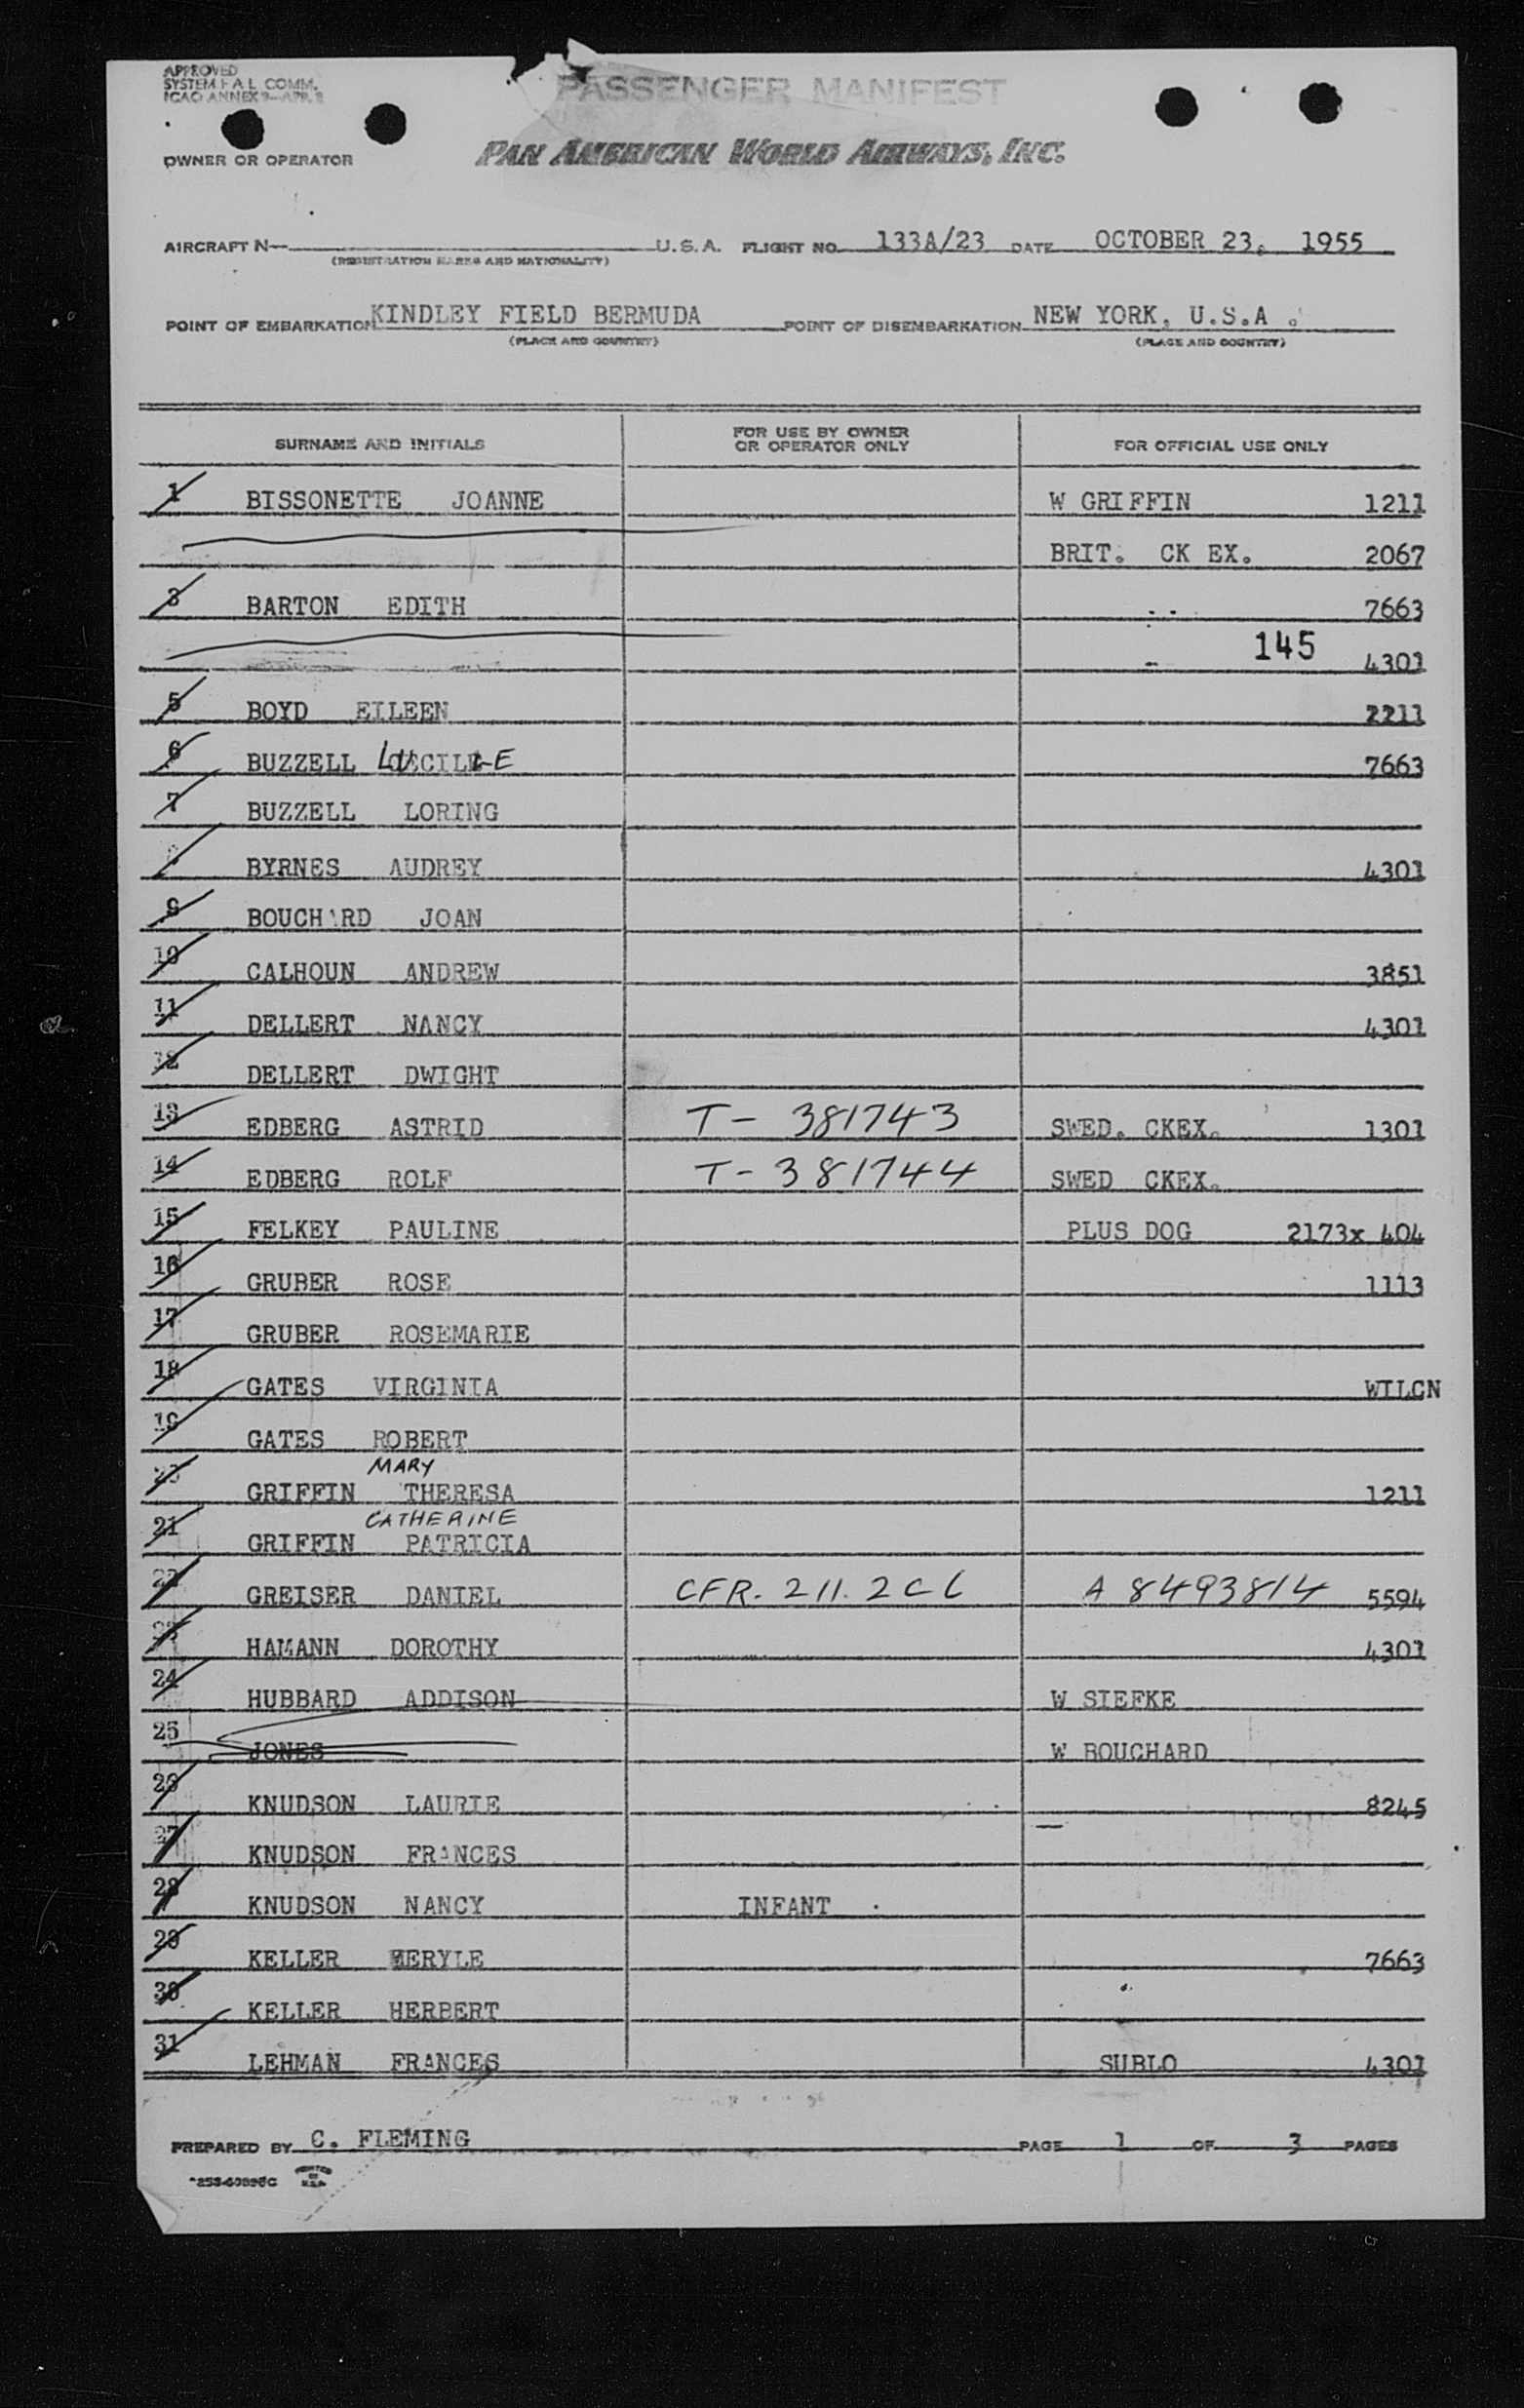 APPROVED
SYSTEM F A L COMM.
ICAO ANNEX 9—APP. 2
PASSENGER MANIFEST
OWNER OR OPERATOR PAN AMERICAN WORLD AIRWAYS, INC.
AIRCRAFT N— U.S.A. FLIGHT NO. 133A/23 DATE OCTOBER 23, 1955
(REGISTRATION MARKS AND NATIONALITY)
POINT OF EMBARKATION KINDLEY FIELD BERMUDA POINT OF DISEMBARKATION NEW YORK, U.S.A.
(PLACE AND COUNTRY) (PLACE AND COUNTRY)
SURNAME AND INITIALS FOR USE BY OWNER OR OPERATOR ONLY FOR OFFICIAL USE ONLY
1 BISSONETTE JOANNE W GRIFFIN 1211
BRIT. CK EX. 2067
3 BARTON EDITH 7663
145 4301
5 BOYD EILEEN 2211
6 BUZZELL LUCILLE 7663
7 BUZZELL LORING
BYRNES AUDREY 4301
9 BOUCHARD JOAN
10 CALHOUN ANDREW 3851
11 DELLERT NANCY 4301
12 DELLERT DWIGHT
13 EDBERG ASTRID T- 381743 SWED. CKEX. 1301
14 EDBERG ROLF T-381744 SWED CKEX.
15 FELKEY PAULINE PLUS DOG 2173x 404
16 GRUBER ROSE 1113
17 GRUBER ROSEMARIE
18 GATES VIRGINIA WILCN
19 GATES ROBERT
MARY
20 GRIFFIN THERESA 1211
CATHERINE
21 GRIFFIN PATRICIA
22 GREISER DANIEL CFR. 211. 2 C 6 A 8493814 5594
23 HAMANN DOROTHY 4301
24 HUBBARD ADDISON W SIEFKE
25 JONES W BOUCHARD
26 KNUDSON LAURIE 8245
27 KNUDSON FRANCES
28 KNUDSON NANCY INFANT
29 KELLER MERYLE 7663
30 KELLER HERBERT
31 LEHMAN FRANCES SUBLO 4301
PREPARED BY C. FLEMING PAGE 1 OF 3 PAGES
PRINTED IN U.S.A.